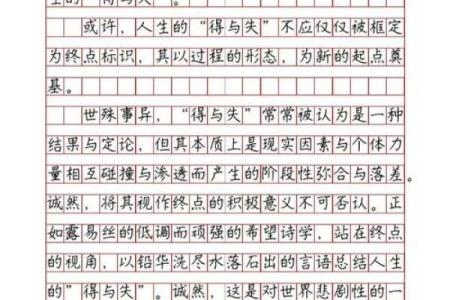 生的“得与失”。
或许，人生的“得与失”不应仅仅被框定
为终点标识，其以过程的形态，为新的起点奠
基。
世殊事异，“得与失”常常被认为是一种
结果与定论，但其本质上是现实因素与个体力
量相互碰撞与渗透而产生的阶段性弥合与落差。
诚然，将其视作终点的积极意义不可否认。正
如露易丝的低调而顽强的希望诗学，站在终点
的视角，以铅华洗尽水落石出的言语总结人生
的”得与失”。诚然，这是对世界悲剧性的一